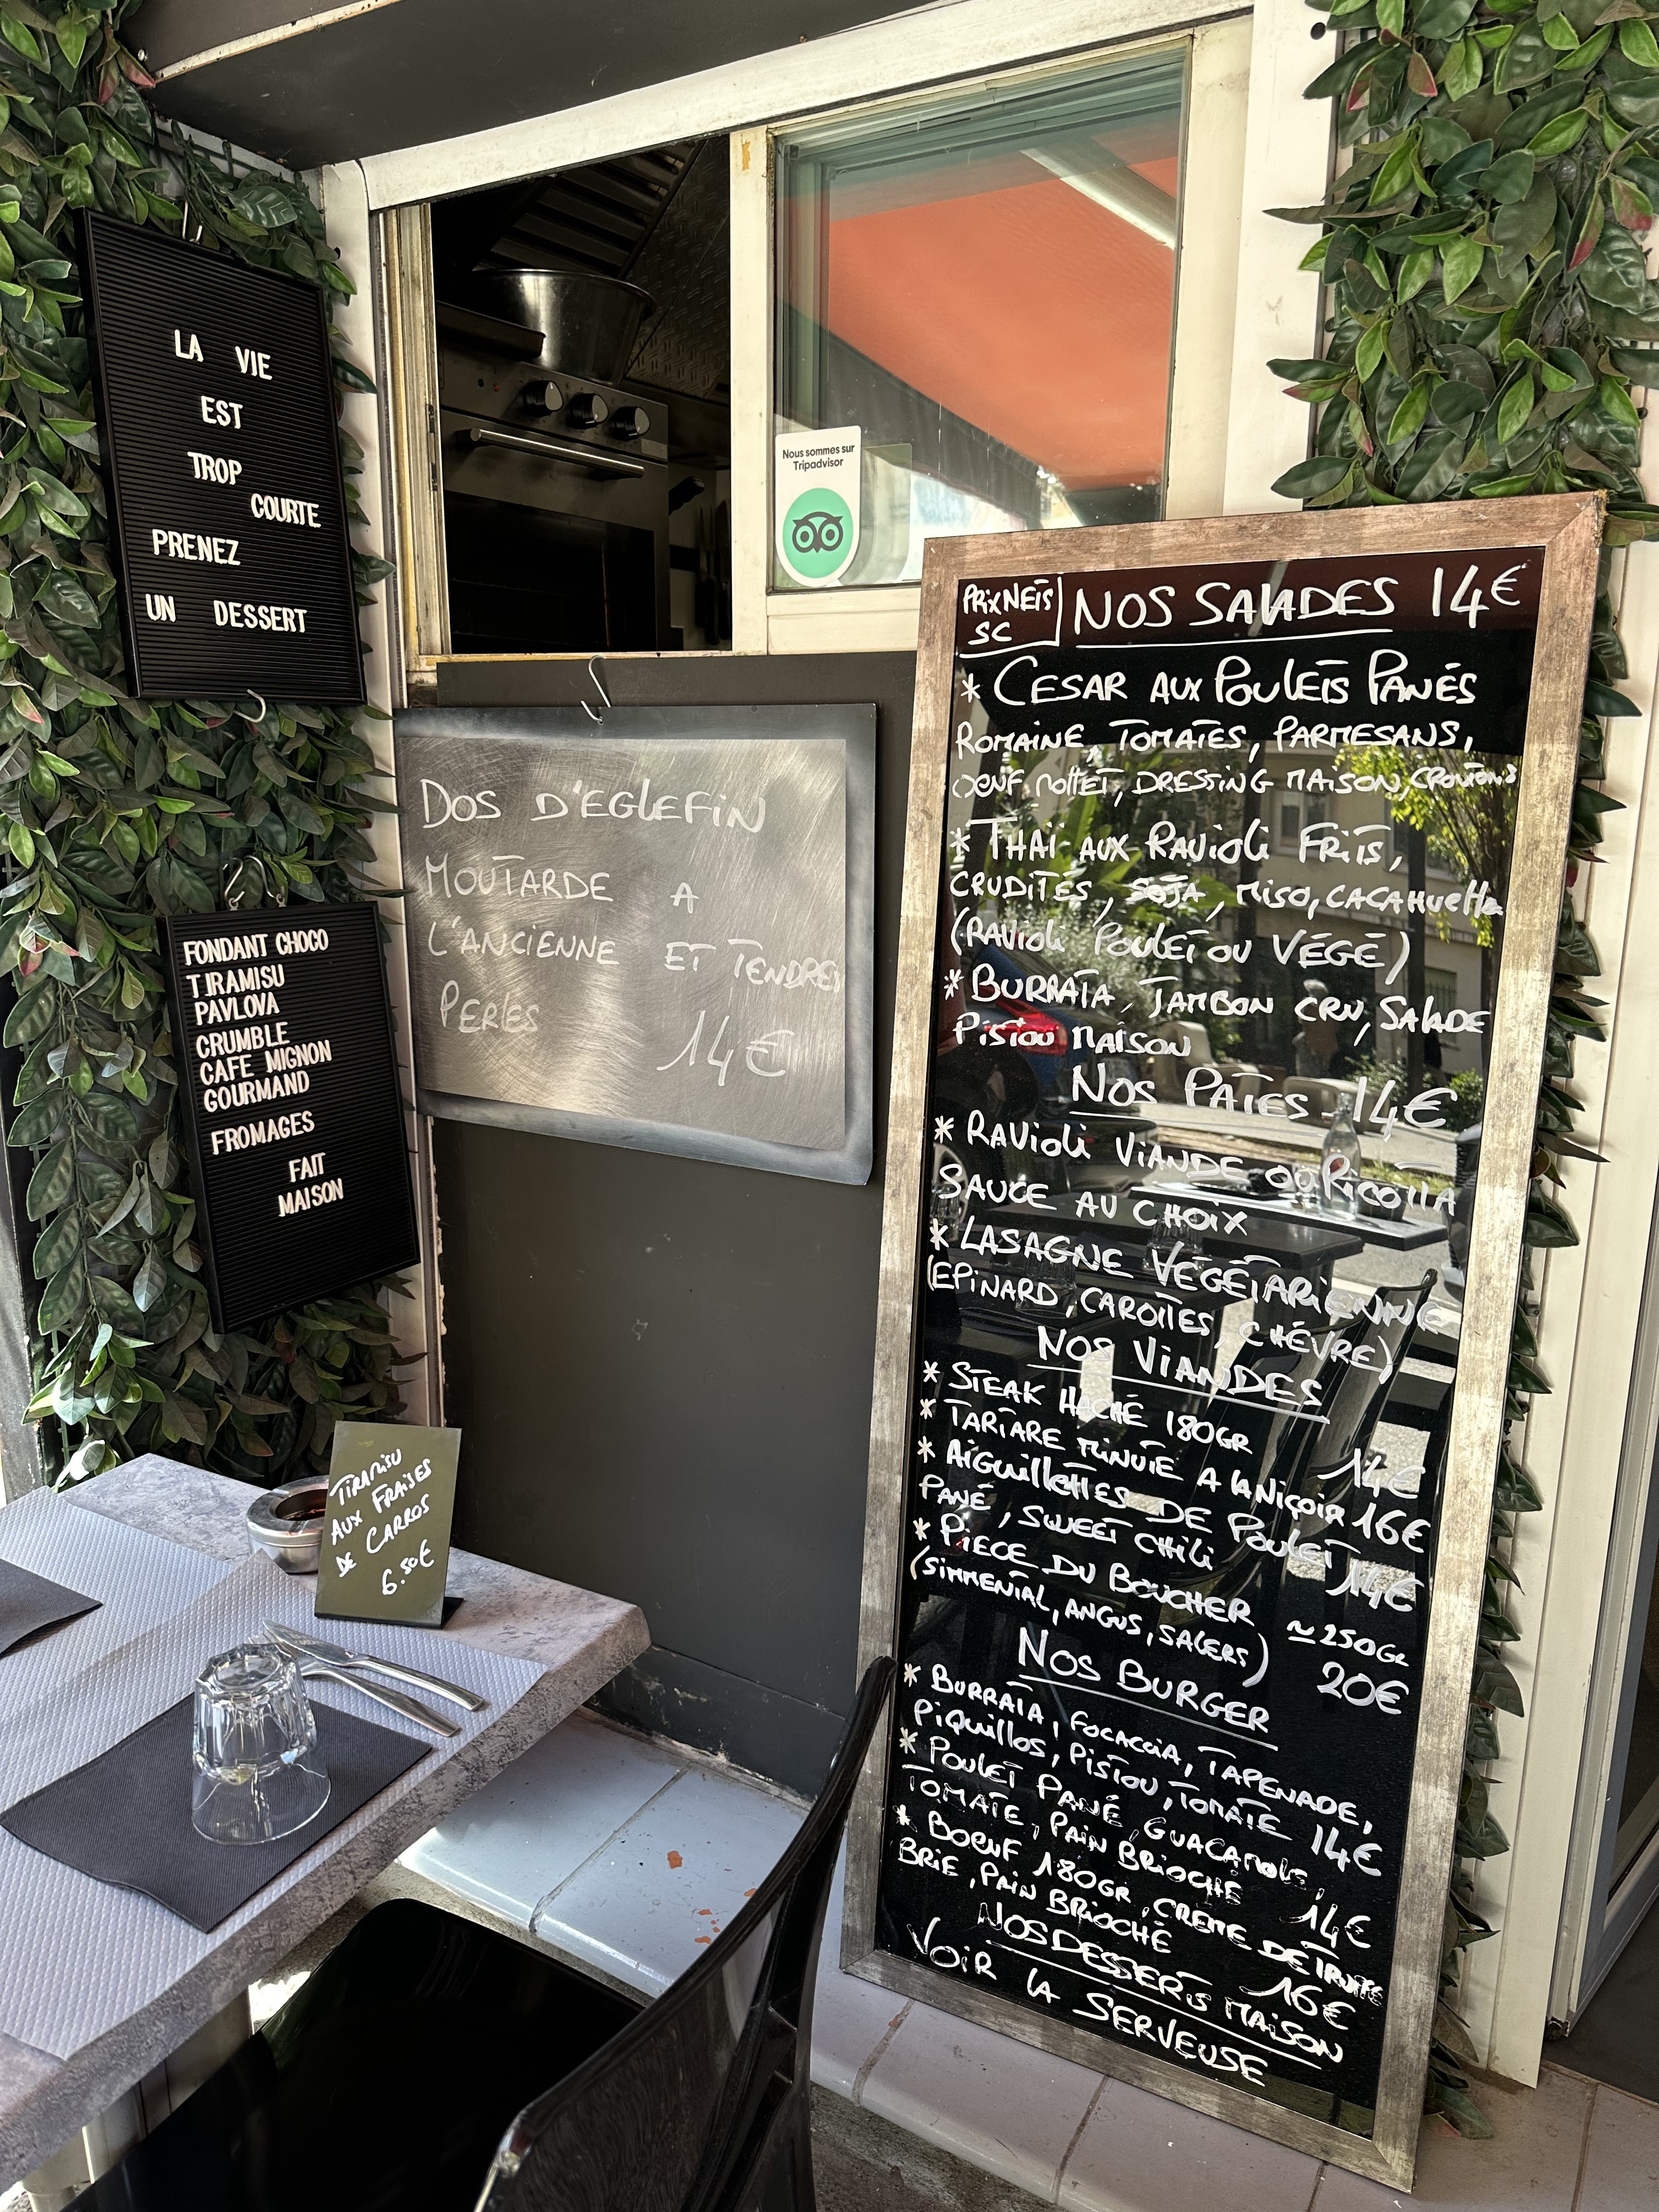 LA VIE
EST
TROP
COURTE
PRENEZ
UN DESSERT
FONDANT CHOCO
TIRAMISU
PAVLOVA
CRUMBLE
CAFE MIGNON
GOURMAND
FROMAGES
FAIT
MAISON
Nous sommes sur
Tripadvisor
DOS D'EGLEFIN
MOUTARDE A
L'ANCIENNE ET TENDRES
PERLES
14€
TIRAMISU
AUX FRAISES
DE CARROS
6.50€
PRIX NETS
SC
NOS SALADES 14€
* CESAR AUX POULETS PANÉS
ROMAINE, TOMATES, PARMESANS,
OEUF MOLLET, DRESSING MAISON, CROUTONS
* THAI AUX RAVIOLI FRITS,
CRUDITÉS, SOJA, MISO, CACAHUETTE
(RAVIOLI POULET OU VÉGÉ)
* BURRATA, JAMBON CRU, SALADE
PISTOU MAISON
NOS PATES 14€
* RAVIOLI VIANDE OU RICOTTA
SAUCE AU CHOIX
* LASAGNE VÉGÉTARIENNE
(EPINARD, CAROTTES, CHÉVRE)
NOS VIANDES
* STEAK HACHÉ 180GR 14€
* TARTARE MINUTE A LA NIÇOIS 16€
* AIGUILLETTES DE POULET
PANÉ, SWEET CHILI 14€
* PIECE DU BOUCHER ≃250GR
(SIMMENTAL, ANGUS, SALERS) 20€
NOS BURGER
* BURRATA, FOCACCIA, TAPENADE,
PIQUILLOS, PISTOU, TOMATE 14€
* POULET PANÉ, GUACAMOLE,
TOMATE, PAIN BRIOCHÉ 14€
* BOEUF 180GR, CREME DE TRUFFE
BRIE, PAIN BRIOCHÉ 16€
NOS DESSERTS MAISON
VOIR LA SERVEUSE